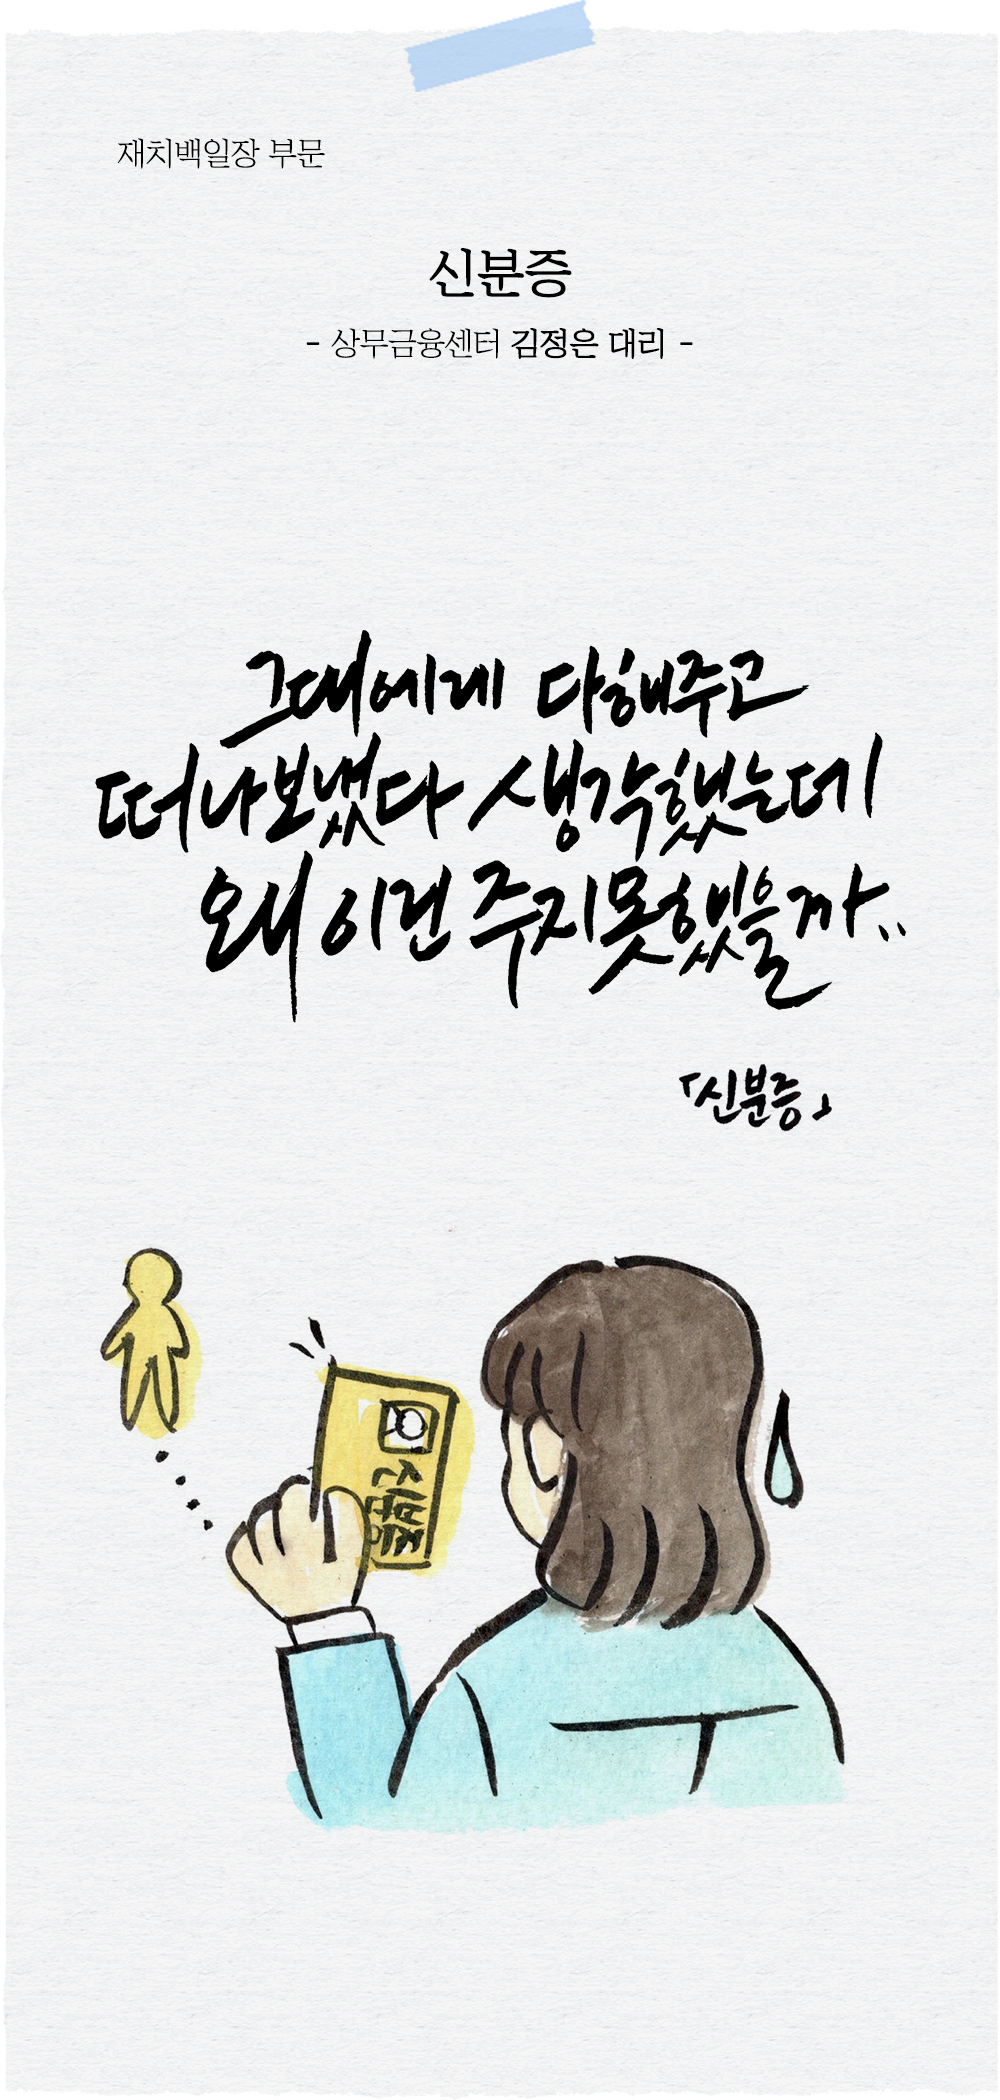 재치백일장 부문
신분증
- 상무금융센터 김정은 대리 -
그대에게 다해주고
떠나보냈다 생각했는데
왜 이건 주지못했을까..
「신분증」
신분증